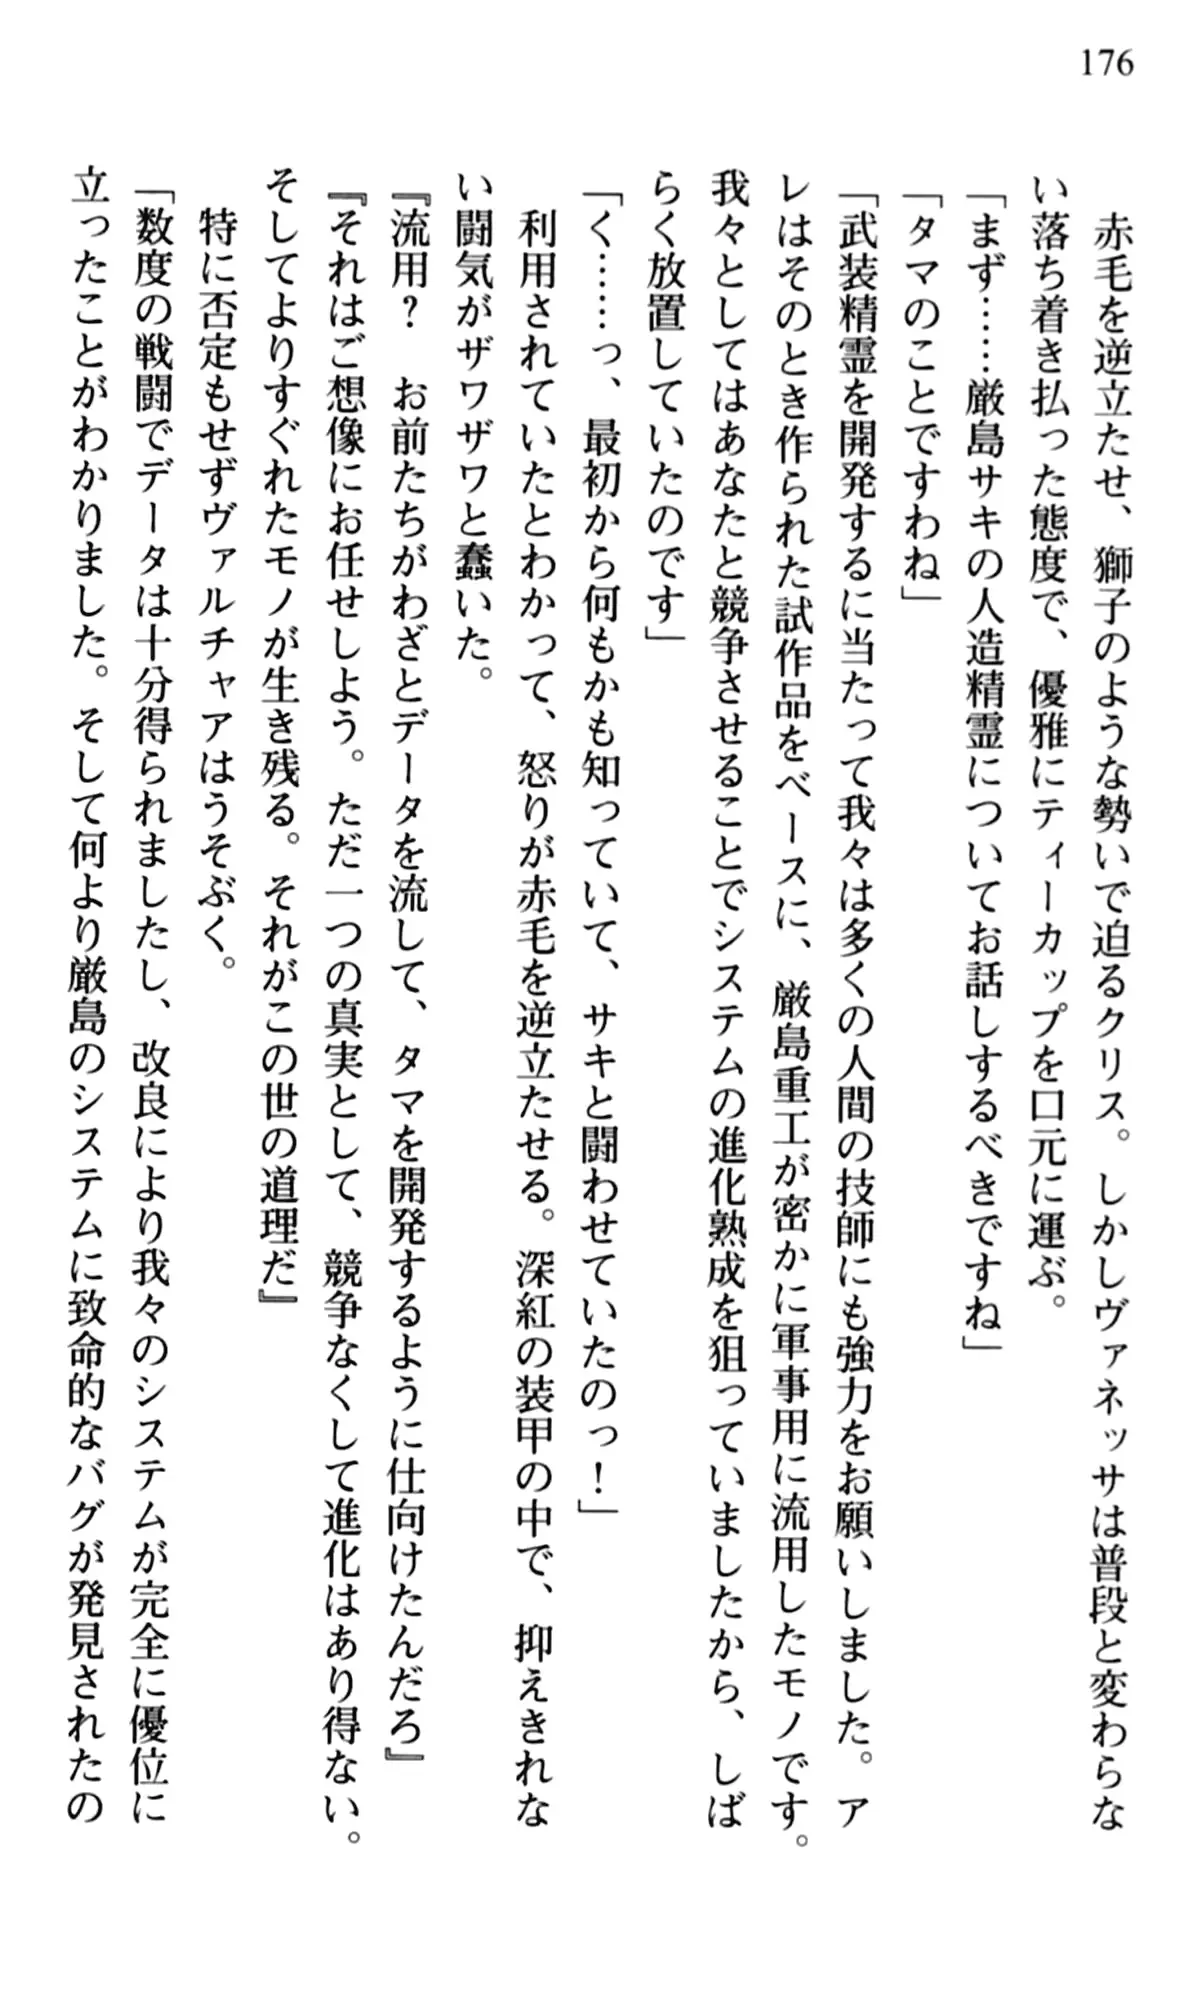 176
　赤毛を逆立たせ、獅子のような勢いで迫るクリス。しかしヴァネッサは普段と変わらな
い落ち着き払った態度で、優雅にティーカップを口元に運ぶ。
「まず……厳島サキの人造精霊についてお話しするべきですね」
「タマのことですわね」
「武装精霊を開発するに当たって我々は多くの人間の技師にも強力をお願いしました。ア
レはそのとき作られた試作品をベースに、厳島重工が密かに軍事用に流用したモノです。
我々としてはあなたと競争させることでシステムの進化熟成を狙っていましたから、しば
らく放置していたのです」
「く……っ、最初から何もかも知っていて、サキと闘わせていたのっ！」
　利用されていたとわかって、怒りが赤毛を逆立たせる。深紅の装甲の中で、抑えきれな
い闘気がザワザワと蠢いた。
『流用？　お前たちがわざとデータを流して、タマを開発するように仕向けたんだろ』
『それはご想像にお任せしよう。ただ一つの真実として、競争なくして進化はあり得ない。
そしてよりすぐれたモノが生き残る。それがこの世の道理だ』
　特に否定もせずヴァルチャアはうそぶく。
「数度の戦闘でデータは十分得られましたし、改良により我々のシステムが完全に優位に
立ったことがわかりました。そして何より厳島のシステムに致命的なバグが発見されたの